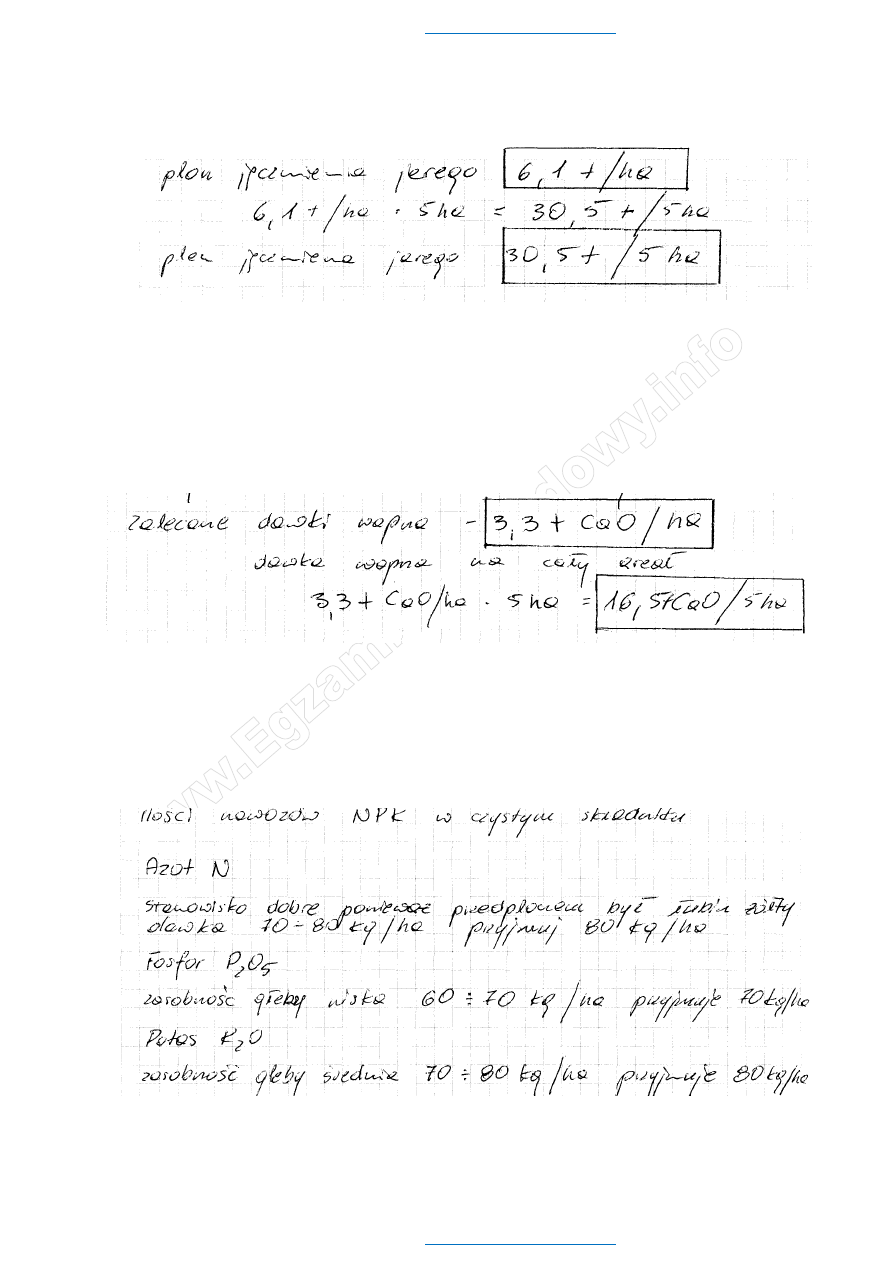 plon jęczmienia jarego 6,1 t/ha
6,1 t/ha · 5ha = 30,5 t/5ha
plon jęczmiena jarego 30,5 t/5 ha
zalecane dawki wapna - 3,3 t CaO/ha
dawka wapna na cały areał
3,3 t CaO/ha · 5 ha = 16,5 t CaO/5 ha
Ilości nawozów NPK w czystym składniku
Azot N
Stanowisko dobre ponieważ przedplonem był łubin żółty
dawka 70 ÷ 80 kg/ha przyjmuj 80 kg/ha
Fosfor P₂O₅
zasobność gleby niska 60 ÷ 70 kg/ha przyjmuje 70 kg/ha
Potas K₂O
zasobność gleby średnia 70 ÷ 80 kg/ha przyjmuje 80 kg/ha